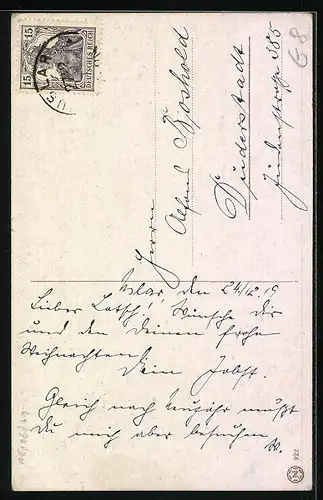 15 15
DEUTSCHES REICH
USLAR
68
Herrn
Alfons Boshold
Duderstadt
Jüdenstraße 385
Uslar, den 24/12.19
Lieber Latsch! Wünsche dir
und den Deinen frohe
Weihnachten!
Dein Jobst.
Gleich nach Neujahr mußt
du mich aber besuchen
W.
922
N